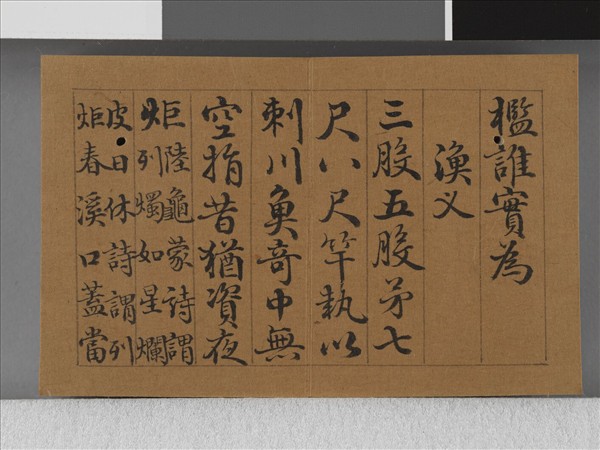 檻誰實為
漁义
三股五股矛七
尺八尺竿執以
刺川魚奇中無
空指昔猶資夜
炬
陸龜蒙詩謂
列燭如星爛
皮日休詩謂列
炬春溪口蓋當